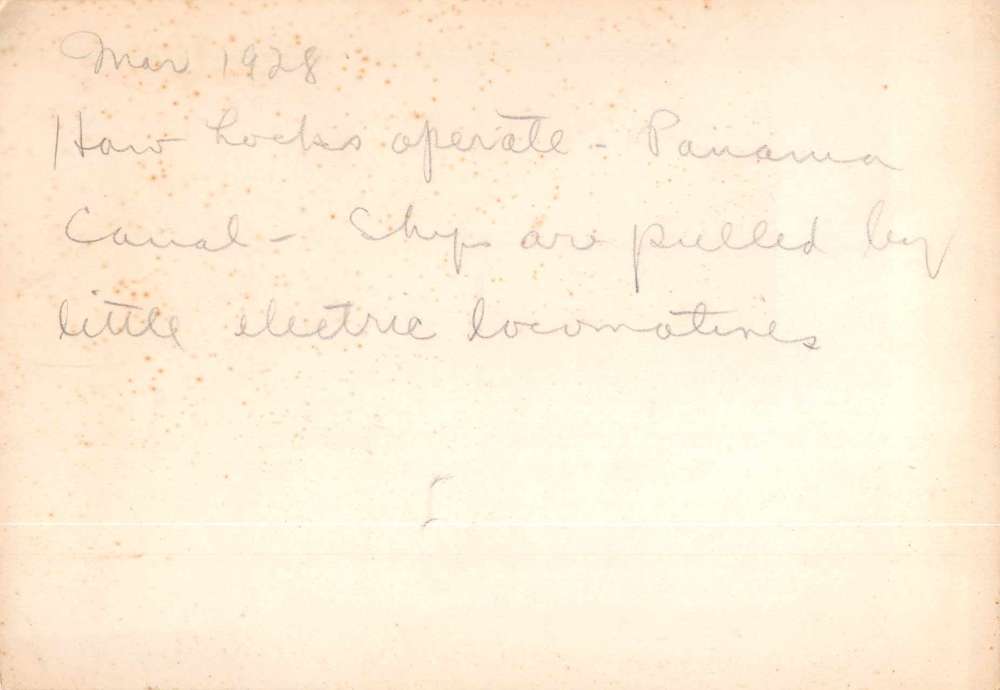 Mar 1928
How Locks operate - Panama
Canal - Ships are pulled by
little electric locomotives